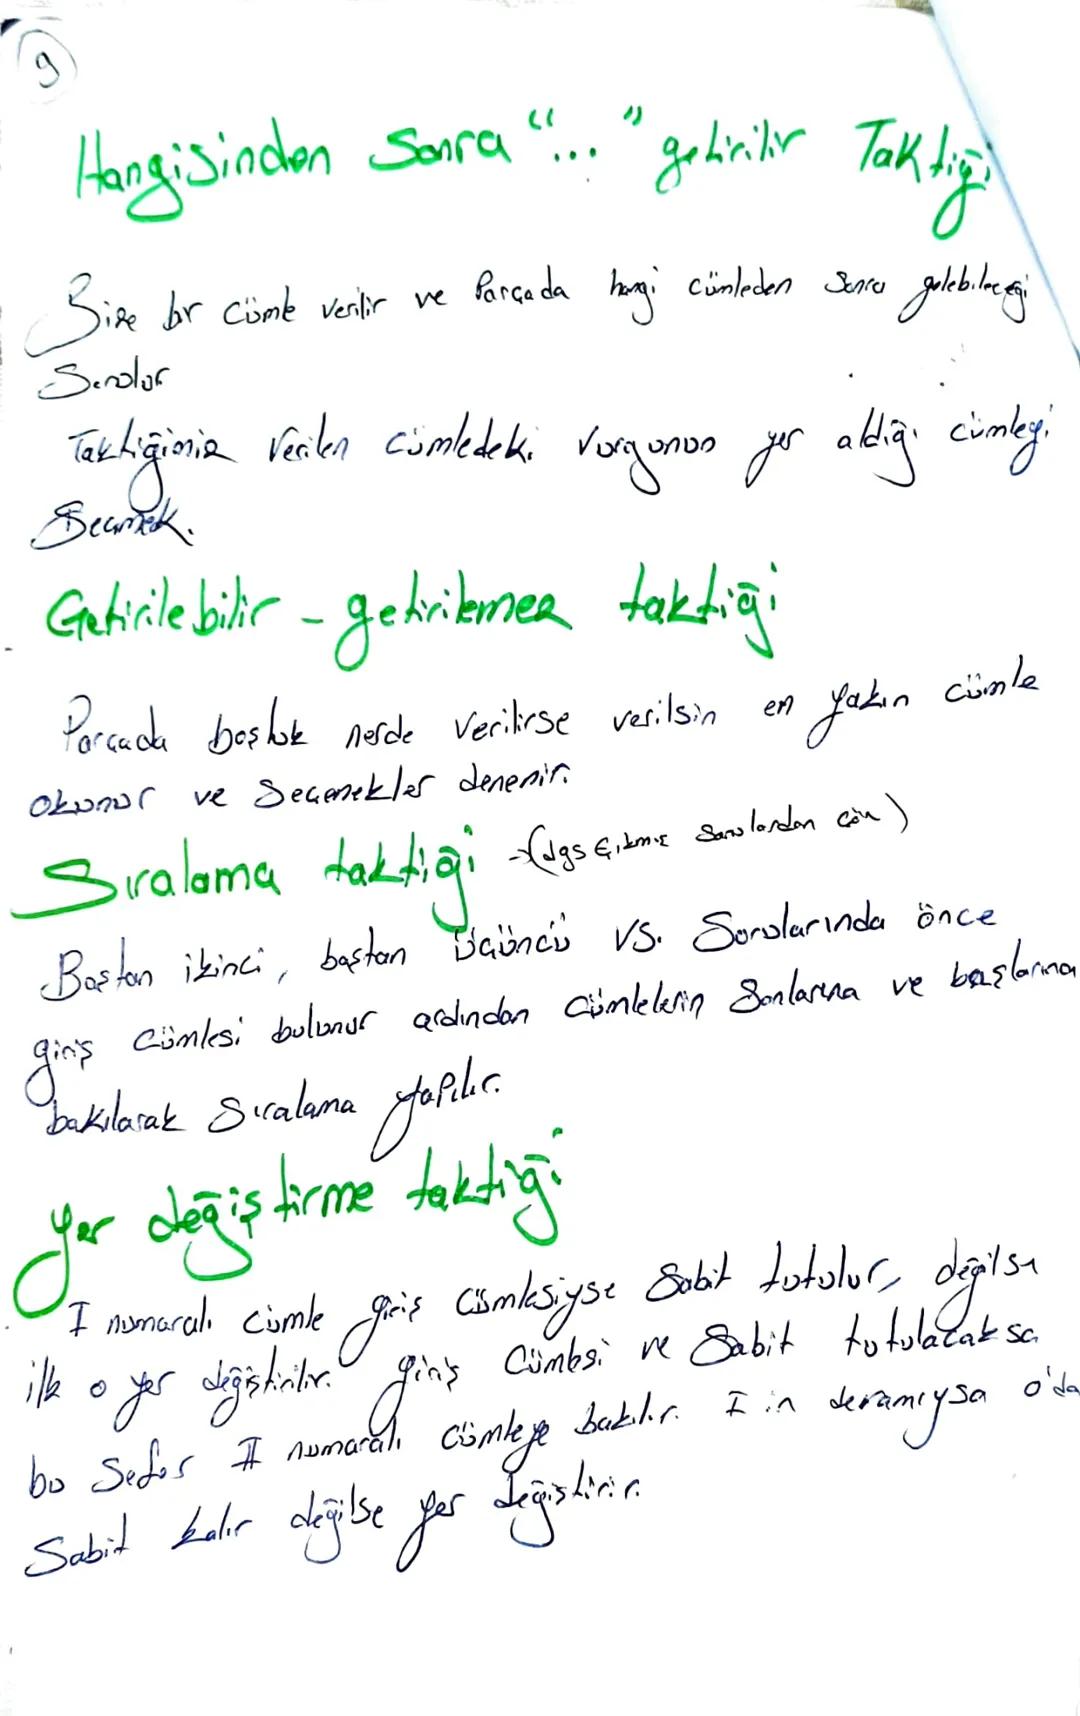 9
Hangisinden Sonra "..." getirilir Taktiği
Bize bir cümle verilir ve Parçada hangi cümleden Sonra gelebileceği
Sorulur
Taktiğimiz Verilen cümledeki Vurgunun yer aldığı cümleyi
Seçmek.
Getirilebilir - getirilemez taktiği
Parçada boşluk nerde Verilirse verilsin en yakın cümle
okunur ve Seçenekler denenir.
Sıralama taktiği → (dgs Çıkmış Sorulardan çöz)
Baştan ikinci, baştan üçüncü vs. Sorularında önce
giriş cümlesi bulunur ardından cümlelerin Sonlarına ve başlarına
bakılarak Sıralama yapılır.
Yer değiştirme taktiği
I numaralı cümle giriş cümlesiyse Sabit tutulur, değilse
ilk o yer değiştirilir. giriş Cümlesi ve Sabit tutulacaksa
bu Sefer II numaralı cümleye bakılır. I in devamıysa o'da
Sabit kalır değilse yer değiştirir.